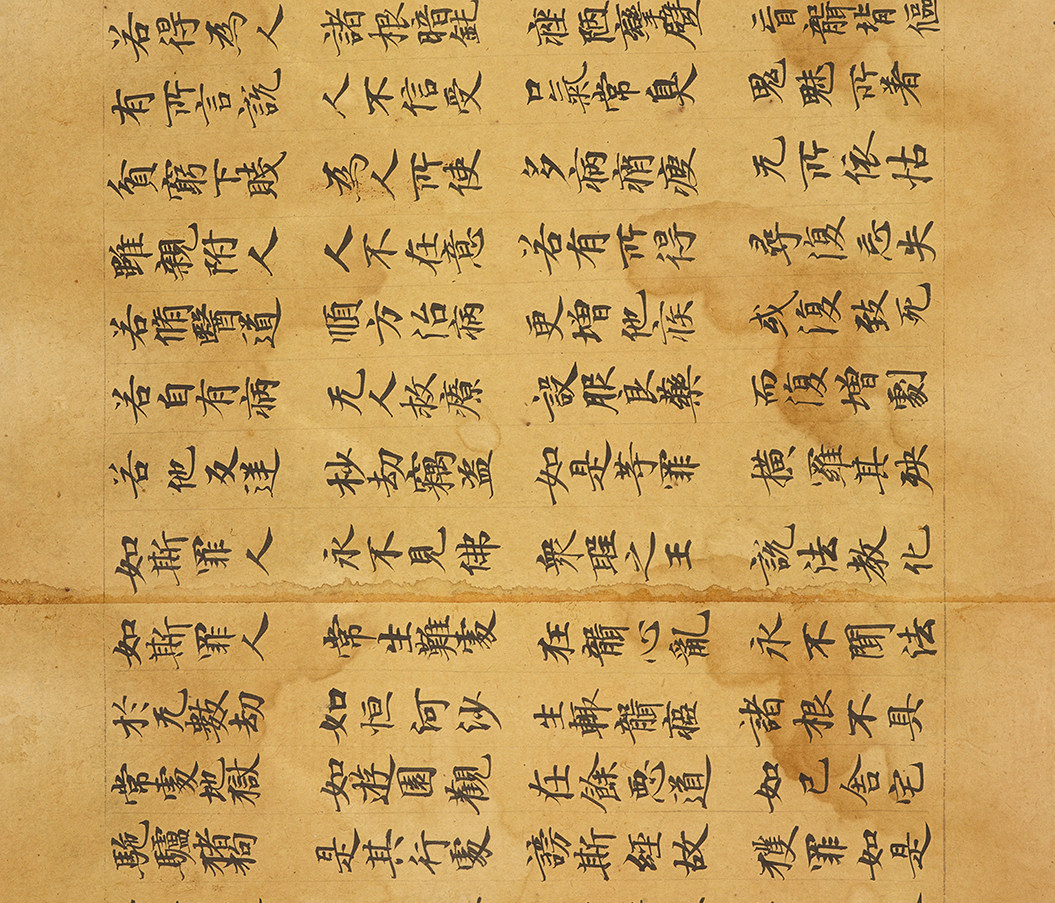 若得為人 諸根暗鈍 痤陋攣躄 盲聾背傴
有所言說 人不信受 口氣常臭 鬼魅所著
貧窮下賤 為人所使 多病痟瘦 无所依怙
雖親附人 人不在意 若有所得 尋復忘失
若脩醫道 順方治病 更增他疾 或復致死
若自有病 无人救療 設服良藥 而復增劇
若他反逆 抄劫竊盜 如是等罪 橫羅其殃
如斯罪人 永不見佛 眾聖之王 說法教化
如斯罪人 常生難處 狂聾心亂 永不聞法
於无數劫 如恒河沙 生輒聾瘂 諸根不具
常處地獄 如遊園觀 在餘惡道 如己舍宅
駞驢猪狗 是其行處 謗斯經故 獲罪如是